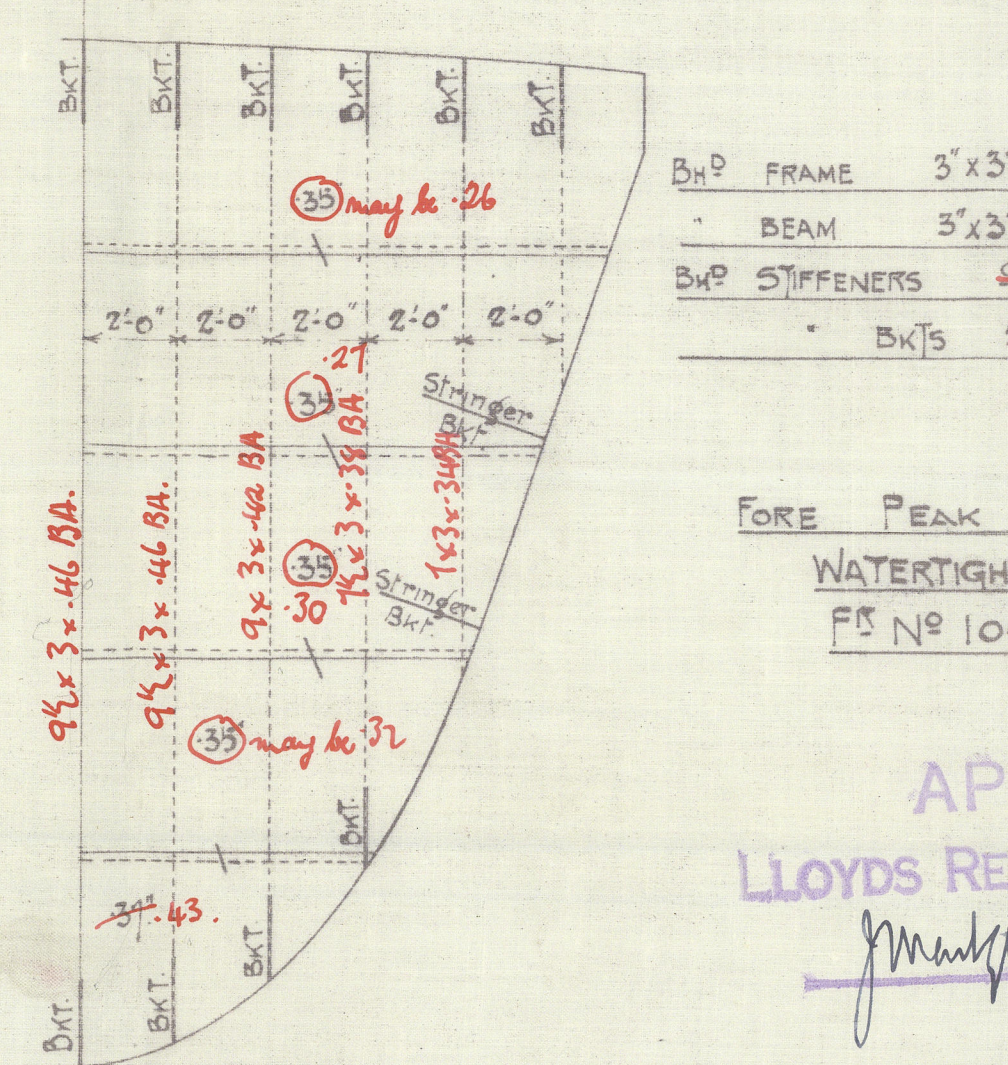 BKT. BKT. BKT. BKT. BKT. BKT.
.35" may be .26
2'-0" 2'-0" 2'-0" 2'-0" 2'-0"
.27
.35"
Stringer
Bkt.
9½ x 3 x .46 BA.
9½ x 3 x .46 BA.
9 x 3 x .42 BA
7½ x 3 x .38 BA
7 x 3 x .34 BA
.35"
.30
Stringer
Bkt.
.35" may be .32
BKT.
.37" .43.
BKT
BKT.
BKT.
BHD FRAME 3" x 3
" BEAM 3" x 3
BHD STIFFENERS
" BKTS
FORE PEAK
WATERTIGH
FR No 10
AP
LLOYDS RE